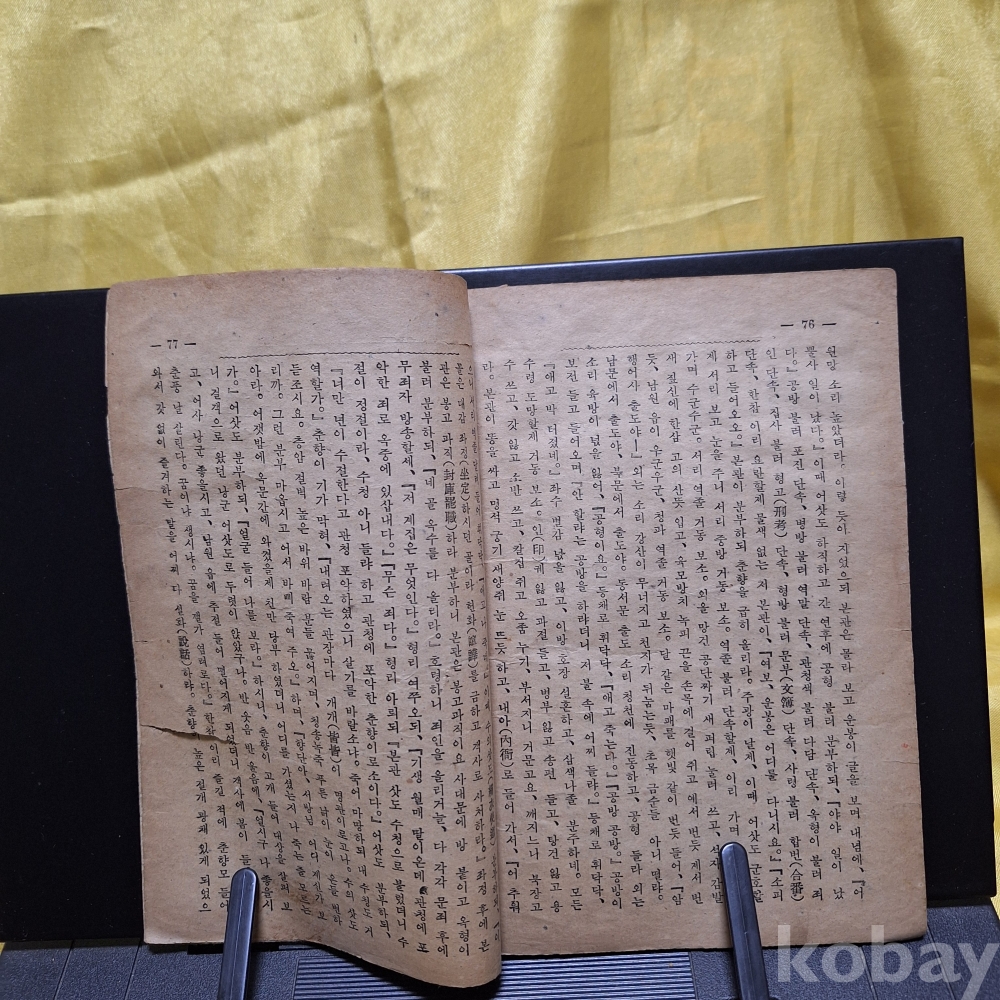 — 76 —
원망 소리 높았더라. 이렇 듯이 지었으되 본관은 몰라 보고 운봉이 글을 보며 내념에, 『어
뿔사 일이 났다.』 이때 어삿도 하직하고 간 연후에 공형 불러 분부하되, 『야야 일이 났
다.』 공방 불러 포진 단속, 병방 불러 역말 단속, 관청색 불러 다담 단속, 옥형이 불러 죄
인 단속, 집사 불러 형고(刑考) 단속, 형방 불러 문부(文簿) 단속, 사령 불러 합번(合番)
단속, 한참 이리 요란할제 물색 없는 저 본관이, 『여보, 운봉은 어디를 다니시요.』 『소피
하고 들어오오.』 본관이 분부하되 춘향을 급히 올리라. 주광이 날제, 이때 어삿도 군호할
제 서리 보고 눈을 주니 서리 중방 거동 보소. 역졸 불러 단속할제, 이리 가며
가며 수군수군. 서리 역졸 거동 보소. 외올 망건 공단싸기 새 패린 눌러 쓰고, 석자 감발
새 짚신에 한삼 고의 산뜻 입고, 육모방치 녹피 끈을 손목에 걸어 쥐고 예서 번듯 제서 번
듯, 남원 읍이 우군우군, 청파 역졸 거동 보소. 달 같은 마패를 햇빛 같이 번듯 들어, 『암
행어사 출도야!』 외는 소리 강산이 무너지고 천지가 뒤눕는듯, 초목 금순들 아니 떨랴.
남문에서 출도야, 북문에서 출도야. 동서문 출도 소리 청천에 진동하고, 공형 들라 외는
소리 육방이 넋을 잃어, 『공형이요.』 등채로 휘닥닥, 『애고 죽는다.』 『공방 공방.』 공방이
보전 들고 들어오며, 『안 할라는 공방을 하라더니 저 불 속에 어찌 들랴.』 등채로 휘닥닥,
『애고 박 터졌네.』 좌수 별감 넋을 잃고, 이방 호장 실혼하고, 삼색나졸 분주하네. 모든
수령 도망할제 거동 보소. 인(印)궤 잃고 과절 들고, 병부 잃고 송편 들고, 탕건 잃고 용
수 쓰고, 갓 잃고 소반 쓰고, 칼집 쥐고 오줌 누기. 부서지니 거문고요, 깨지느니 북장고
라. 본관이 똥을 싸고 멍석 궁기 새양쥐 눈 뜨듯 하고, 내아(內衙)로 들어 가서, 『어 추워
— 77 —
물은 대감 좌정(坐定)하시던 골이라 헌화(諠譁)를 금하고 객사로 사처하라.』 좌정 후에 본
관은 봉고 파직(封庫罷職)하라 분부하니 본관은 봉고파직이요 사대문에 방 붙이고 옥형이
불러 분부하되, 『네 골 옥수를 다 올리라.』 호령하니 죄인을 올리거늘, 다 각각 문죄 후에
무죄자 방송할제, 『저 계집은 무엇인다.』 형리 여쭈오되, 『기생 월매 딸이온데 관청에 포
악한 죄로 옥중에 있삽내다.』 『무슨 죄다.』 형리 아뢰되 『본관 삿도 수청으로 불렀더니 수
절이 정절이라, 수청 아니 들랴 하고 관청에 포악한 춘향이로소이다.』 어삿도 분부하되,
『너만 년이 수절한다고 관청 포악하였으니 살기를 바랄소냐. 죽어 마땅하되 내 수청도 거
역할가.』 춘향이 기가 막혀, 『내려오는 관장마다 개개(皆皆)이 명관이로고나. 수의 삿도
듣조시요. 층암 절벽 높은 바위 바람 분들 무너지며, 청송녹죽 푸른 남이 눈이 온들 변하
리까. 그런 분부 마옵시고 어서 바삐 죽여 주오.』 하며, 『향단아, 서방님 어디 계신가 보
아라. 어젯밤에 옥문간에 와겼을제 천만 당부 하였더니 어디를 가셨는지 나 죽는 줄 모르는
가.』 어삿도 분부하되, 『얼굴 들어 나를 보라.』 하시니, 춘향이 고개 들어 대상을 살펴 보
니 걸객으로 왔던 낭군 어삿도로 두렷이 앉았구나. 반 웃음 반 울음에, 『얼시구나 좋을시
고, 어사 낭군 좋을시고. 남원 읍에 추절 들어 떨어지게 되었더니 객사에 봄이 들
춘풍 날 살린다. 꿈이냐 생시냐. 꿈을 깰가 염려로다.』 한참 이리 즐길 적에 춘향모 들어
와서 갓 없이 즐겨하는 말을 어찌 다 설화(說話)하랴. 춘향의 높은 절개 광채 있게 되었으
kobay